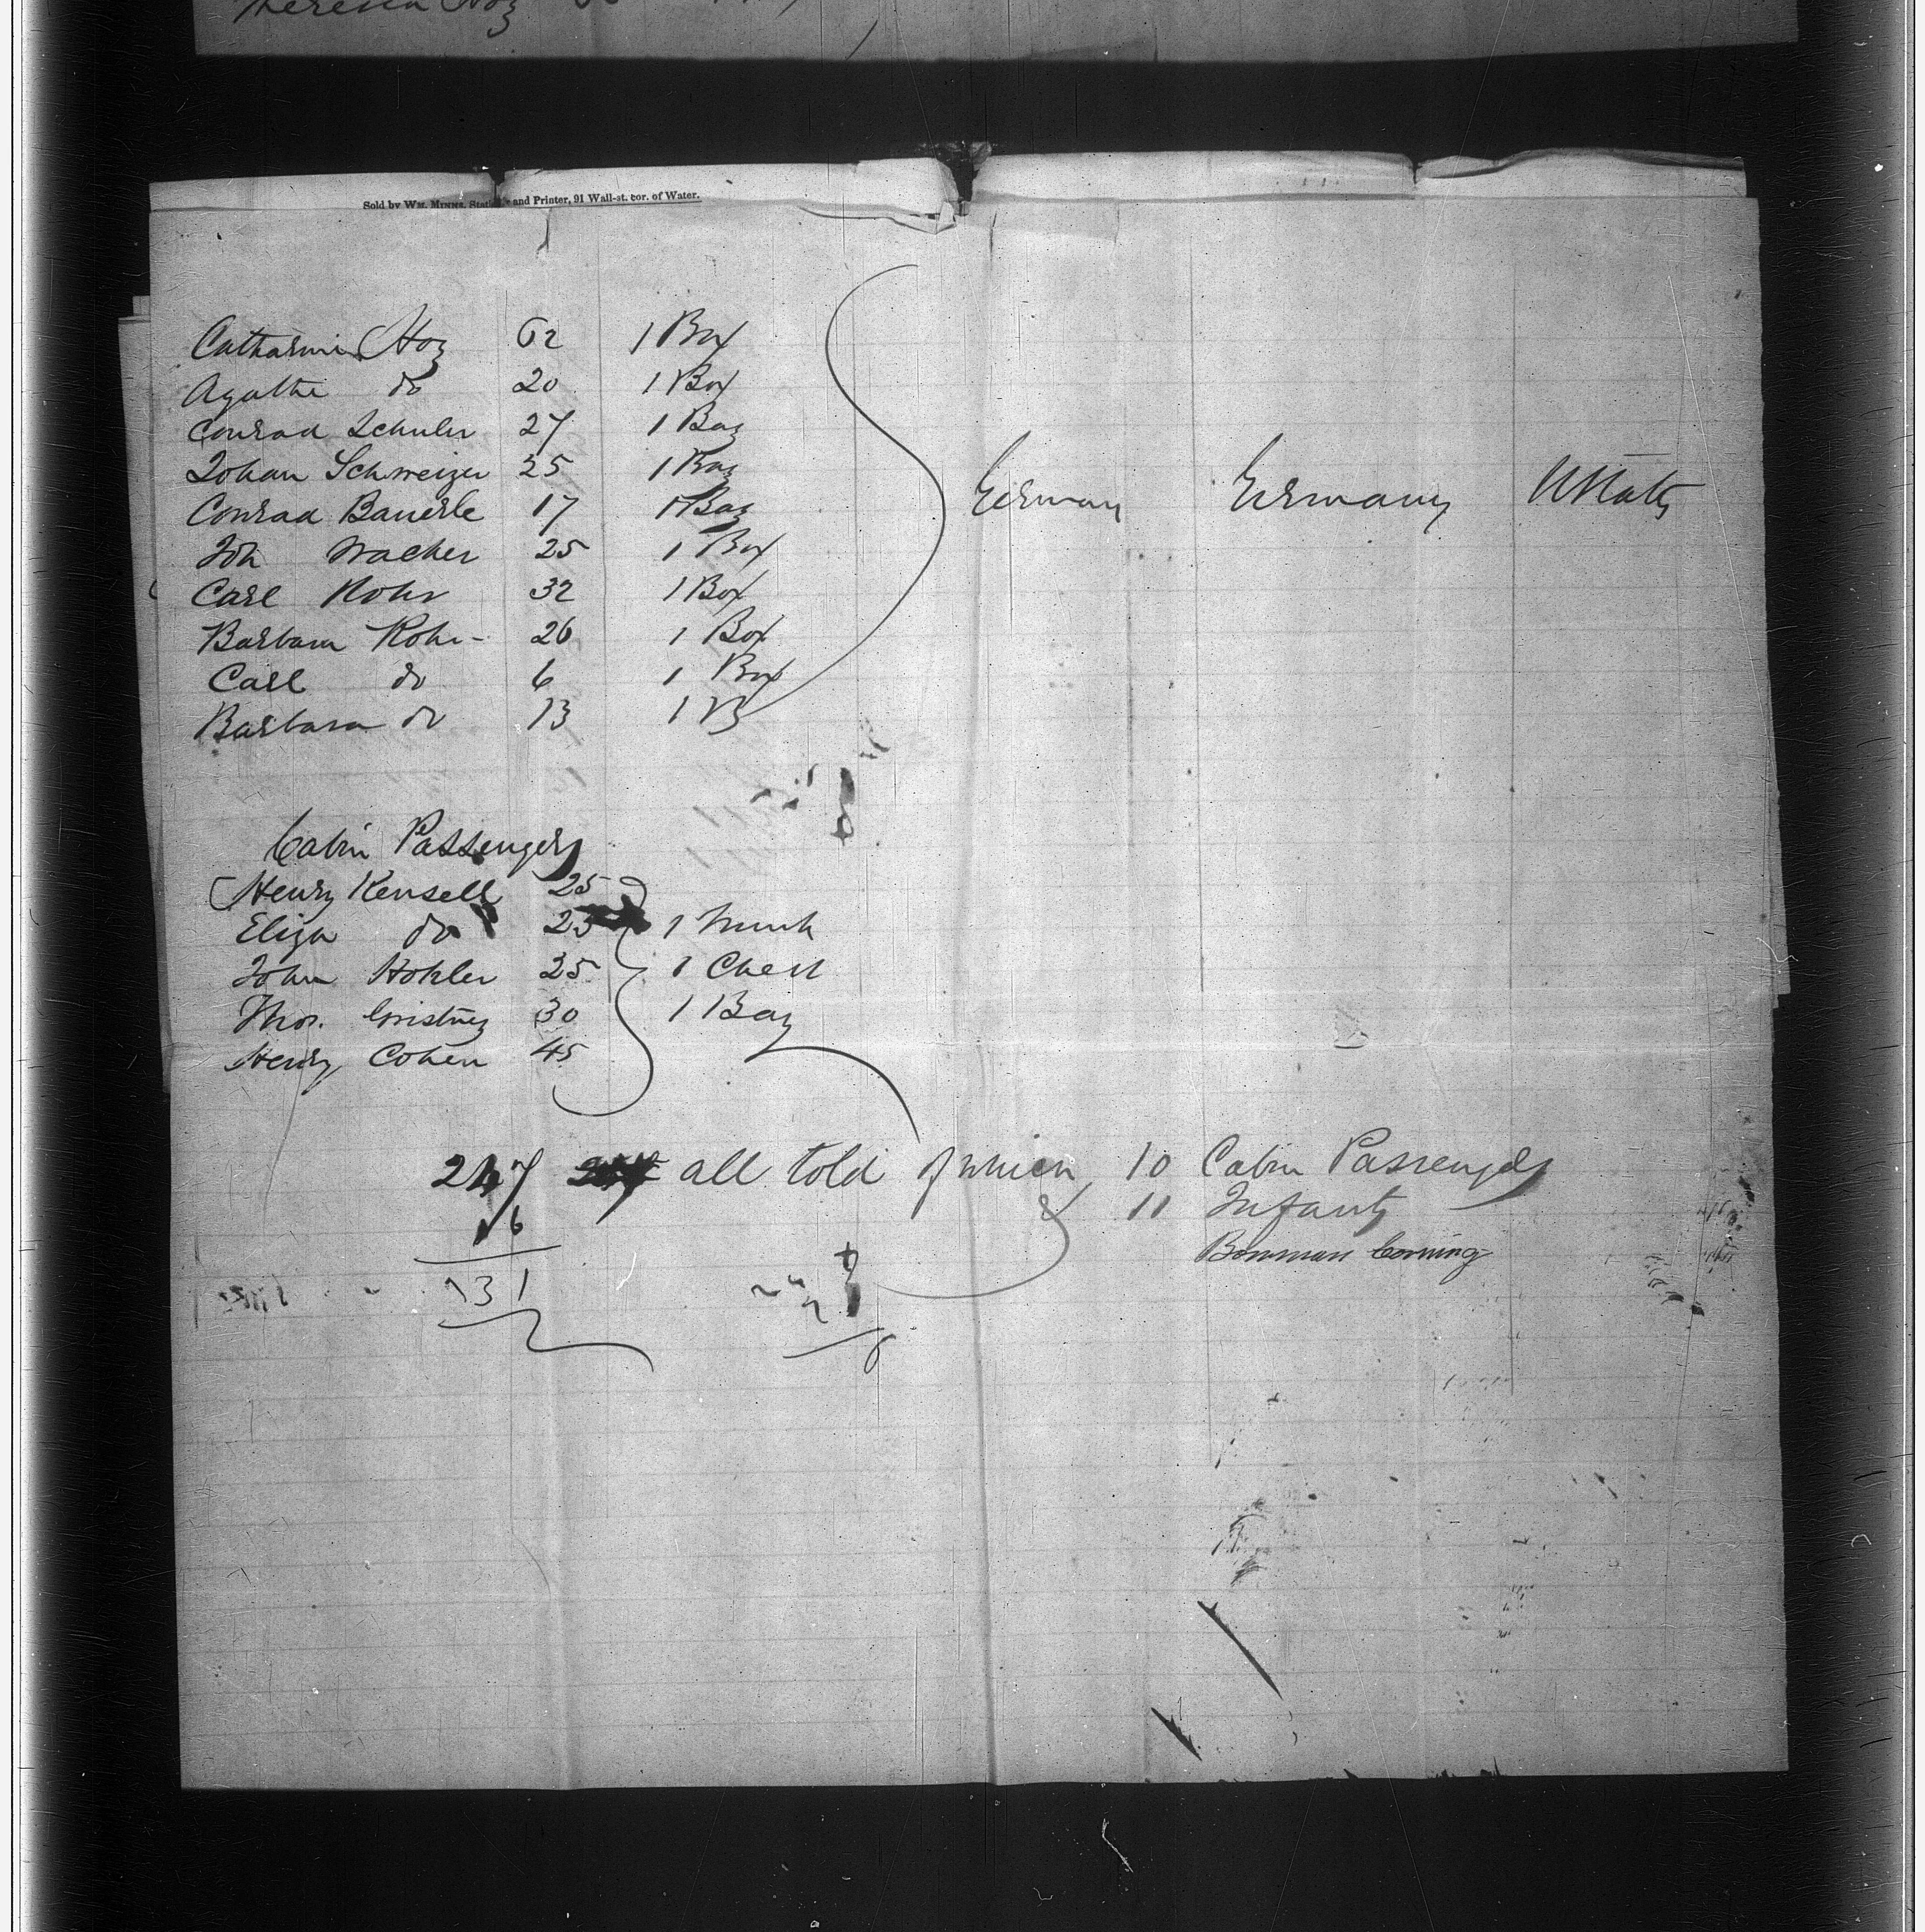 Theresia Hoz
Sold by WM. MINNS, Stationer and Printer, 91 Wall-st. cor. of Water.
Catharine Hoz 62 1 Box
Agathe do 20 1 Box
Conrad Schuler 27 1 Bag
Johan Schweizer 25 1 Bag
Conrad Bauerle 17 1 Bag German Germany UStates
Joh Wacker 25 1 Box
Carl Rohr 32 1 Box
Barbara Rohr 26 1 Box
Carl do 6 1 Box
Barbara do 13 1 B
Cabin Passengers
Henry Kensell 25
Eliza do 25 1 Trunk
John Hokler 25 1 Chest
Thos. 30 1 Bag
Henry Cohen 45
247 all told of which 10 Cabin Passengers
& 11 Infants
16
Bowman Corning
231